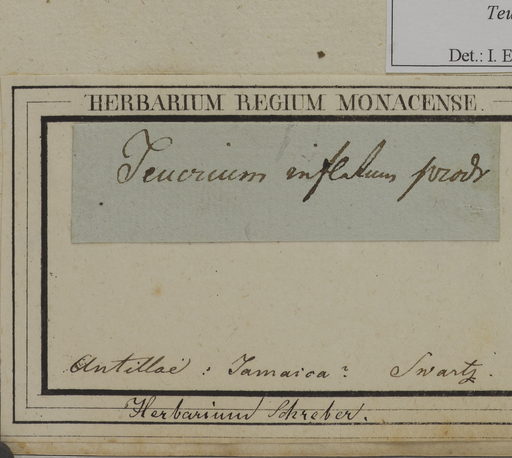 Teu
Det.: I. E
HERBARIUM REGIUM MONACENSE.
Teucrium inflatum prodr
Antillae : Jamaica? Swartz.
Herbarium Schreber.